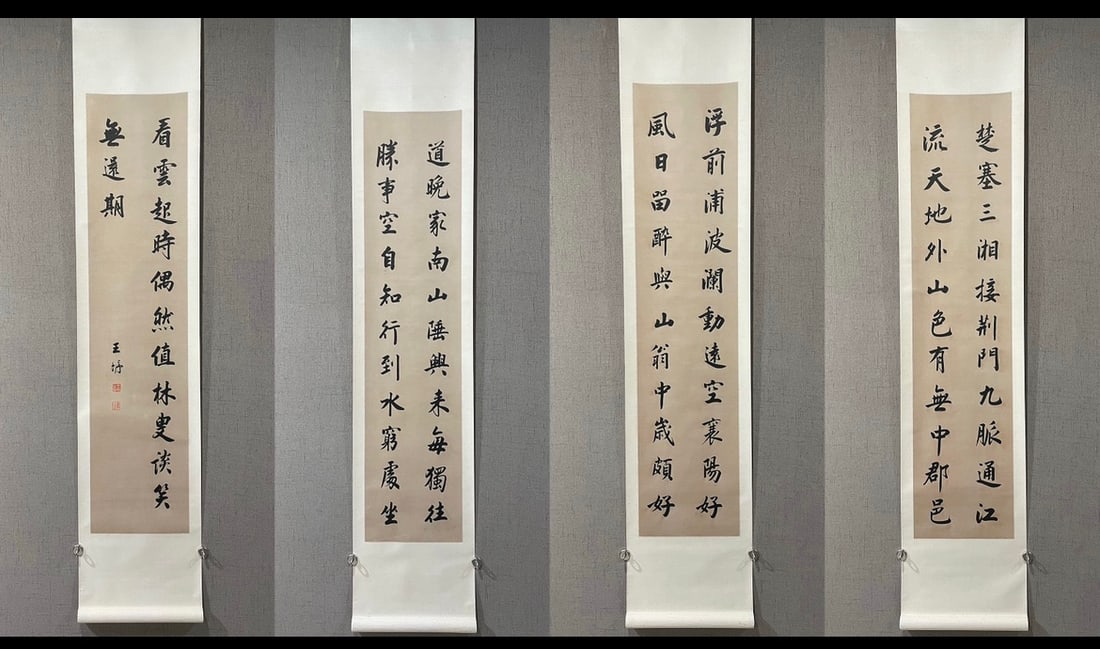 楚塞三湘接荆門九脈通江
流天地外山色有無中郡邑
浮前浦波瀾動遠空襄陽好
風日留醉與山翁中歲頗好
道晚家南山陲興来每獨往
勝事空自知行到水窮處坐
看雲起時偶然值林叟談笑
無還期
王垿